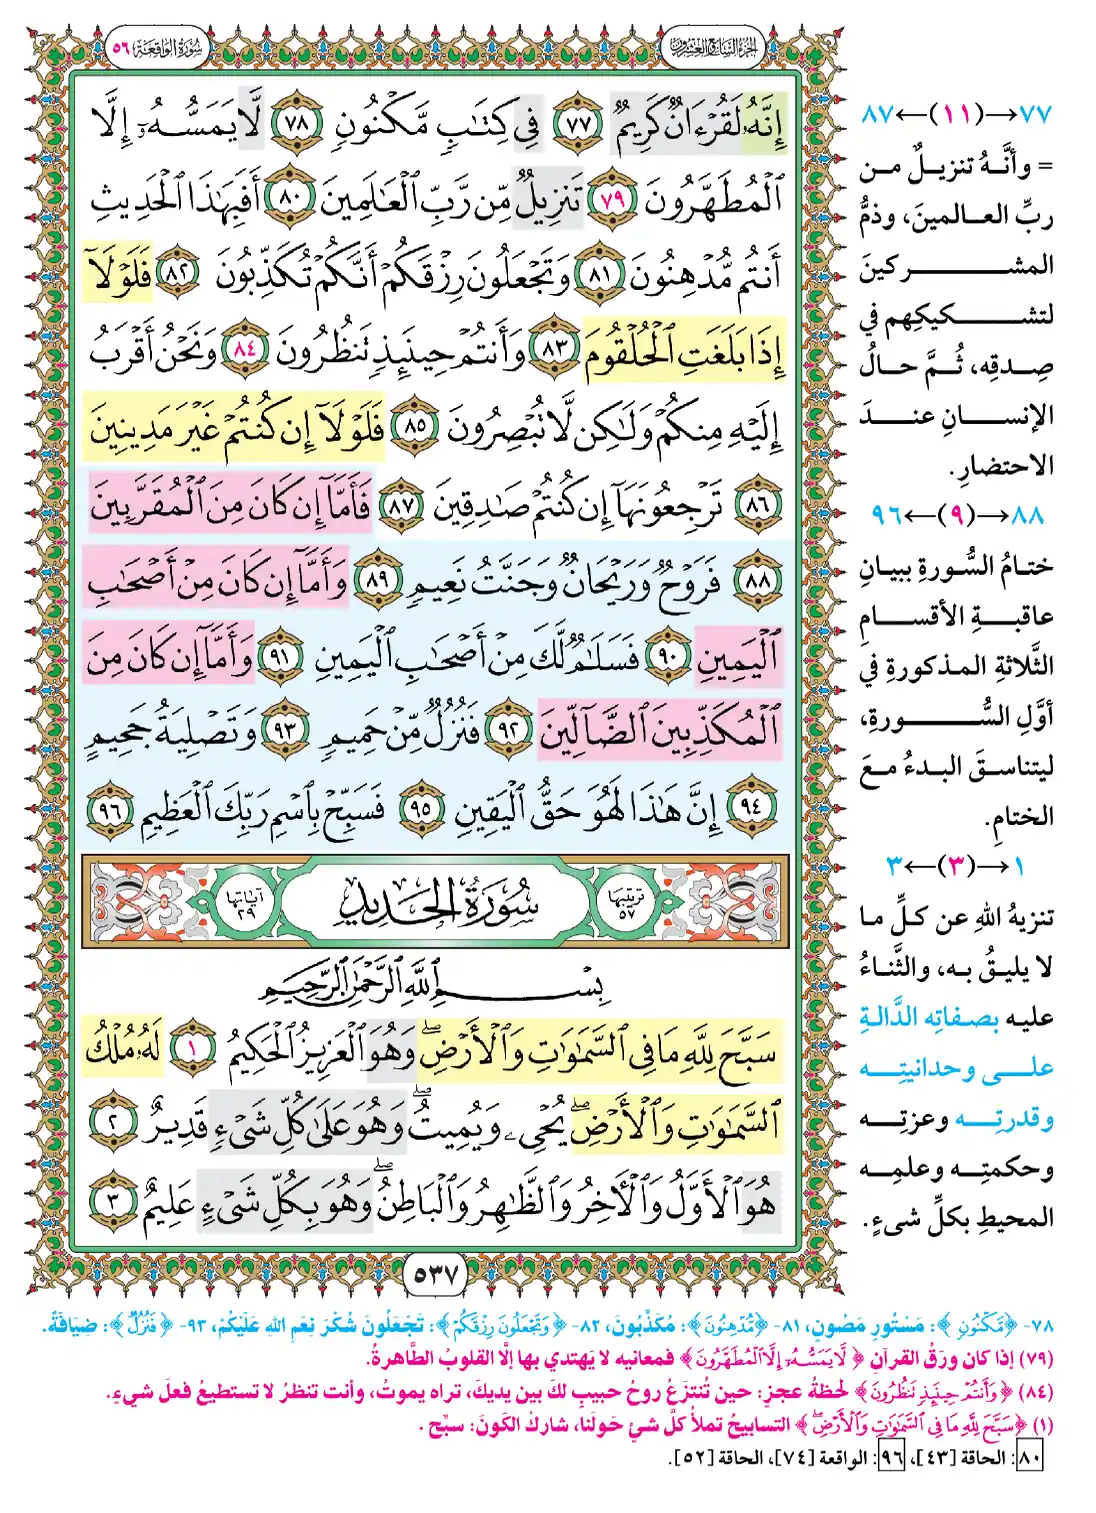 الجزء السابع والعشرون
سورة الواقعة ٥٦
إِنَّهُۥ لَقُرْءَانٌ كَرِيمٌ ٧٧ فِى كِتَٰبٍ مَّكْنُونٍ ٧٨ لَّا يَمَسُّهُۥٓ إِلَّا
ٱلْمُطَهَّرُونَ ٧٩ تَنزِيلٌ مِّن رَّبِّ ٱلْعَٰلَمِينَ ٨٠ أَفَبِهَٰذَا ٱلْحَدِيثِ
أَنتُم مُّدْهِنُونَ ٨١ وَتَجْعَلُونَ رِزْقَكُمْ أَنَّكُمْ تُكَذِّبُونَ ٨٢ فَلَوْلَآ
إِذَا بَلَغَتِ ٱلْحُلْقُومَ ٨٣ وَأَنتُمْ حِينَئِذٍ تَنظُرُونَ ٨٤ وَنَحْنُ أَقْرَبُ
إِلَيْهِ مِنكُمْ وَلَٰكِن لَّا تُبْصِرُونَ ٨٥ فَلَوْلَآ إِن كُنتُمْ غَيْرَ مَدِينِينَ
٨٦ تَرْجِعُونَهَآ إِن كُنتُمْ صَٰدِقِينَ ٨٧ فَأَمَّآ إِن كَانَ مِنَ ٱلْمُقَرَّبِينَ
٨٨ فَرَوْحٌ وَرَيْحَانٌ وَجَنَّتُ نَعِيمٍ ٨٩ وَأَمَّآ إِن كَانَ مِنْ أَصْحَٰبِ
ٱلْيَمِينِ ٩٠ فَسَلَٰمٌ لَّكَ مِنْ أَصْحَٰبِ ٱلْيَمِينِ ٩١ وَأَمَّآ إِن كَانَ مِنَ
ٱلْمُكَذِّبِينَ ٱلضَّآلِّينَ ٩٢ فَنُزُلٌ مِّنْ حَمِيمٍ ٩٣ وَتَصْلِيَةُ جَحِيمٍ
٩٤ إِنَّ هَٰذَا لَهُوَ حَقُّ ٱلْيَقِينِ ٩٥ فَسَبِّحْ بِٱسْمِ رَبِّكَ ٱلْعَظِيمِ ٩٦
ترتيبها ٥٧ سُورَةُ الحَدِيدِ آياتها ٢٩
بِسْمِ ٱللَّهِ ٱلرَّحْمَٰنِ ٱلرَّحِيمِ
سَبَّحَ لِلَّهِ مَا فِى ٱلسَّمَٰوَٰتِ وَٱلْأَرْضِۖ وَهُوَ ٱلْعَزِيزُ ٱلْحَكِيمُ ١ لَهُۥ مُلْكُ
ٱلسَّمَٰوَٰتِ وَٱلْأَرْضِۖ يُحْىِۦ وَيُمِيتُۖ وَهُوَ عَلَىٰ كُلِّ شَىْءٍ قَدِيرٌ ٢
هُوَ ٱلْأَوَّلُ وَٱلْءَاخِرُ وَٱلظَّٰهِرُ وَٱلْبَاطِنُۖ وَهُوَ بِكُلِّ شَىْءٍ عَلِيمٌ ٣
٥٣٧
٧٧→(١١)←٨٧
= وأنَّهُ تنزيلٌ من
ربِّ العالمينَ، وذمُّ
المشركينَ
لتشكيكِهم في
صِدقِه، ثُمَّ حالُ
الإنسانِ عندَ
الاحتضارِ.
٨٨→(٩)←٩٦
ختامُ السُّورةِ ببيانِ
عاقبةِ الأقسامِ
الثَّلاثةِ المذكورةِ في
أوَّلِ السُّورةِ،
ليتناسقَ البدءُ معَ
الختامِ.
١→(٣)←٣
تنزيهُ اللهِ عن كلِّ ما
لا يليقُ به، والثَّناءُ
عليه بصفاتِه الدَّالةِ
على وحدانيتِه
وقدرتِه وعزتِه
وحكمتِه وعلمِه
المحيطِ بكلِّ شىءٍ.
٧٨- ﴿مَّكْنُونٍ﴾: مَسْتُورٍ مَصُونٍ، ٨١- ﴿مُّدْهِنُونَ﴾: مُكَذِّبُونَ، ٨٢- ﴿وَتَجْعَلُونَ رِزْقَكُمْ﴾: تَجْعَلُونَ شُكْرَ نِعَمِ اللهِ عَلَيْكُمْ، ٩٣- ﴿فَنُزُلٌ﴾: ضِيَافَةٌ.
(٧٩) إذا كان ورَقُ القرآنِ ﴿لَّا يَمَسُّهُۥٓ إِلَّا ٱلْمُطَهَّرُونَ﴾ فمعانيه لا يَهتدي بها إلَّا القلوبُ الطَّاهرةُ.
(٨٤) ﴿وَأَنتُمْ حِينَئِذٍ تَنظُرُونَ﴾ لحظةُ عجزٍ: حين تُنتزعُ روحُ حبيبٍ لكَ بين يديكَ، تراه يموتُ، وأنت تنظرُ لا تستطيعُ فعلَ شيءٍ.
(١) ﴿سَبَّحَ لِلَّهِ مَا فِى ٱلسَّمَٰوَٰتِ وَٱلْأَرْضِۖ﴾ التسابيحُ تملأُ كلَّ شيءٍ حَولَنا، شاركْ الكَونَ: سبِّح.
٨٠: الحاقة [٤٣]، ٩٦: الواقعة [٧٤]، الحاقة [٥٢].